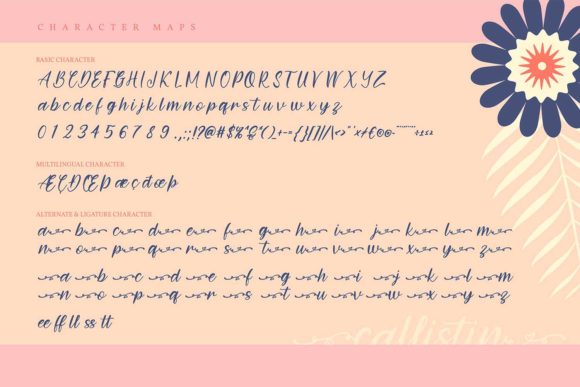 CHARACTER MAPS
BASIC CHARACTER
A B C D E F G H I J K L M N O P Q R S T U V W X Y Z
a b c d e f g h i j k l m n o p q r s t u v w x y z
0 1 2 3 4 5 6 7 8 9 .,:;!?@#$%
MULTILINGUAL CHARACTER
ALTERNATE & LIGATURE CHARACTER
a b c d e f g h i j k l m
n o p q r s t u v w x y z
a b c d e f g h i j k l m
n o p q r s t u v w x y z
ee ff ll ss tt